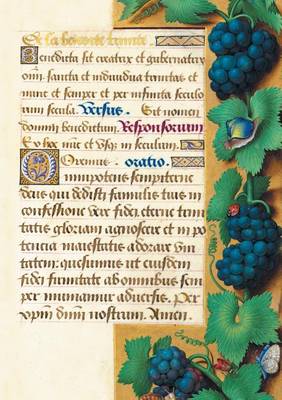 Et la benoiste trinite.
Benedicta sit creatrix et gubernatrix
oīm sancta et individua trinitas et
nunc et semper et per infinita seculo
rum secula. Versus. Sit nomen
domini benedictum. Responsorium
Ex hoc nūc et usq; in seculum.
Oremus. oratio.
Omnipotens sempiterne
deus qui dedisti famulis tuis in
confessione vere fidei eterne trini
tatis gloriam agnoscere et in po
tencia maiestatis adorare vni
tatem: quesumus ut eiusdem
fidei firmitate ab omnibus sem
per muniamur adversis. Per
xp̄m dn̄m nostrum. Amen.